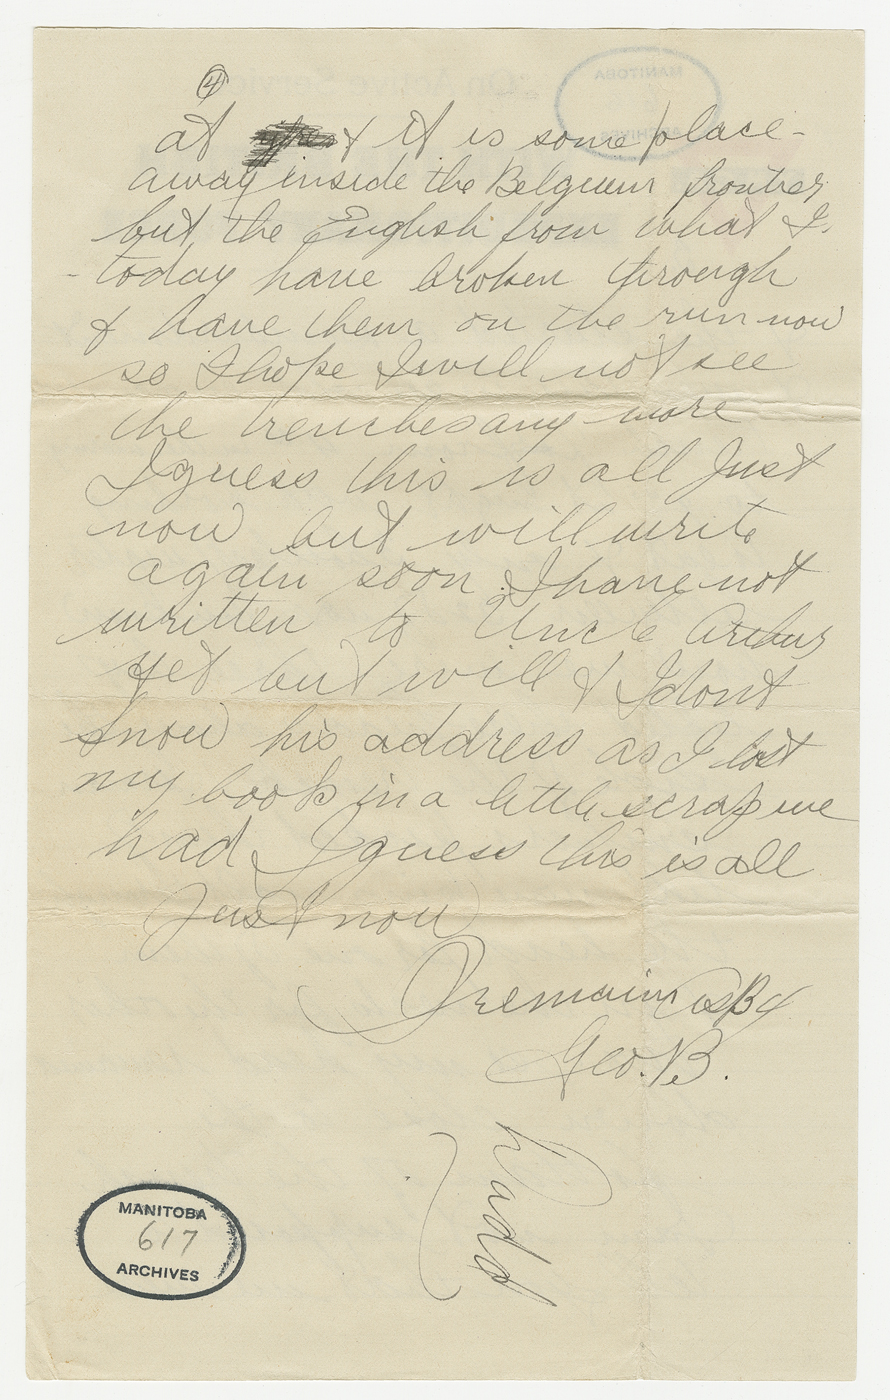 ④
at ypres & it is some place-
away inside the Belgium frontier
but the English from what I.
- today have broken through
& have them on the run now
so I hope I will not see
the trenches any more
I guess this is all Just
now but will write
again soon. I have not
written to Uncle Arthur
yet but will & I dont
know his address as I lost
my book in a little scrap we
had. I guess this is all
Just now
I remain as B4
Geo. B.
MANITOBA
617
ARCHIVES